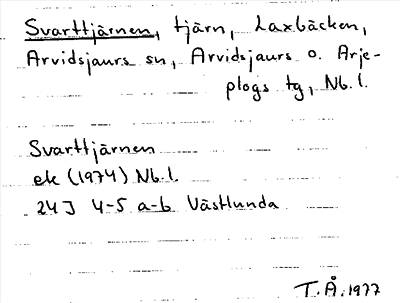 Svarttjärnen, tjärn, Laxbäcken,
Arvidsjaurs sn, Arvidsjaurs o. Arje-
plogs tg, Nb. l.
Svarttjärnen
ek (1974) Nb. l.
24J 4-5 a-b Västlunda
T.Å. 1977